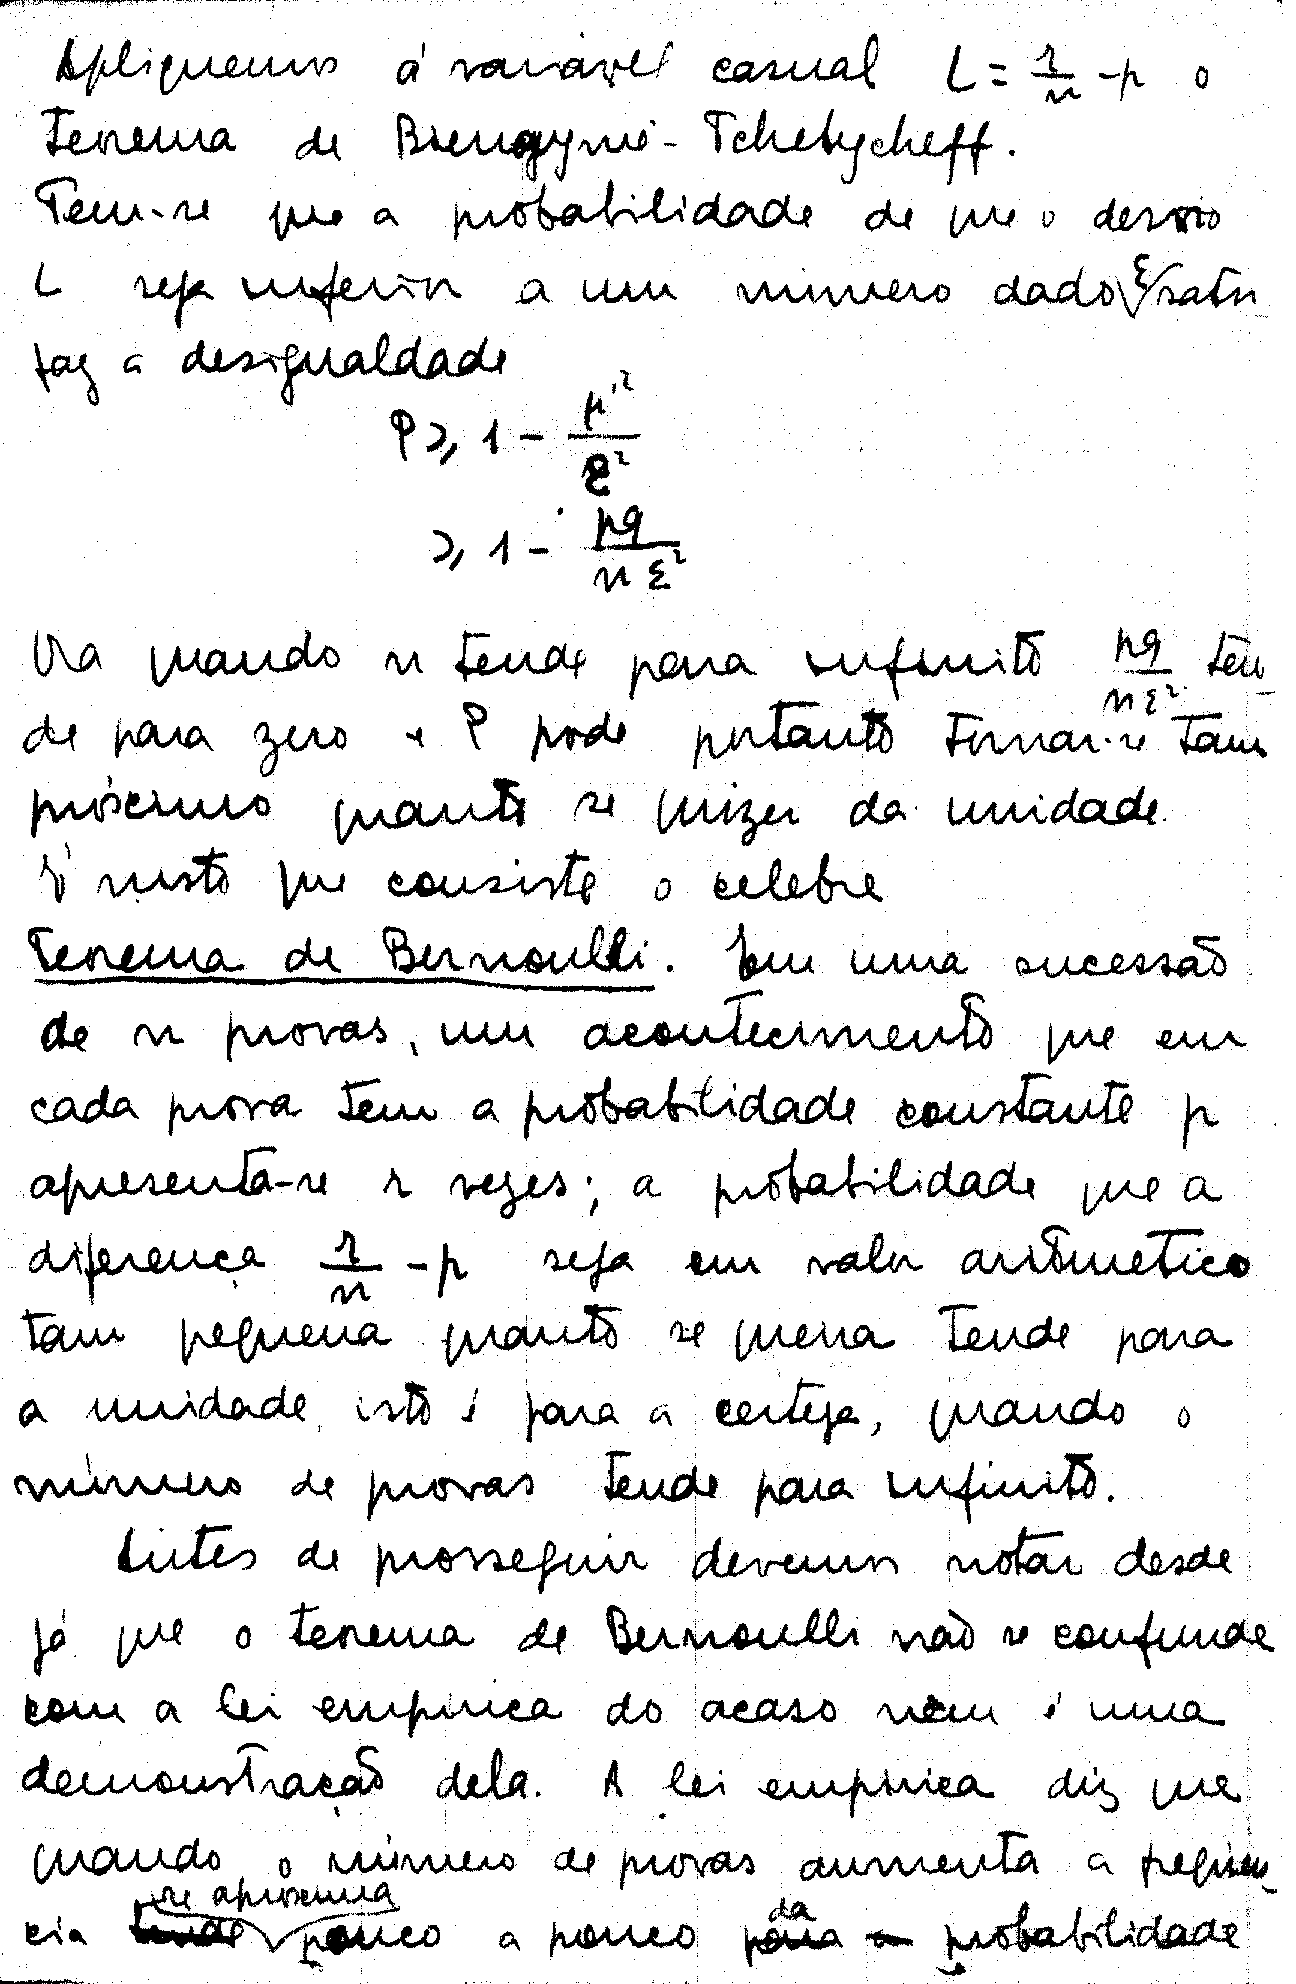 Apliquemos á variável casual L = r/n - p o
teorema de Bienaymé-Tchebycheff.
Tem-se que a probabilidade de que o desvio
L seja inferior a um número dado ε satis
faz a desigualdade
P ⩾ 1 - μ'²/ε²
⩾ 1 - pq/nε²
Ora quando n tende para infinito pq/nε² ten-
de para zero e P pode portanto tornar-se tam
próximo quanto se quizer da unidade.
É nisto que consiste o celebre
Teorema de Bernoulli. Em uma sucessão
de n provas, um acontecimento que em
cada prova tem a probabilidade constante p
apresenta-se r vezes; a probabilidade que a
diferença r/n - p seja em valor aritmetico
tam pequena quanto se queira tende para
a unidade, isto é para a certeza, quando o
número de provas tende para infinito.
Antes de prosseguir devemos notar desde
já que o teorema de Bernoulli não se confunde
com a lei empirica do acaso nem é uma
demonstração dela. A lei empirica diz que
quando o número de provas aumenta a frequen-
cia se aproxima pouco a pouco da probabilidade